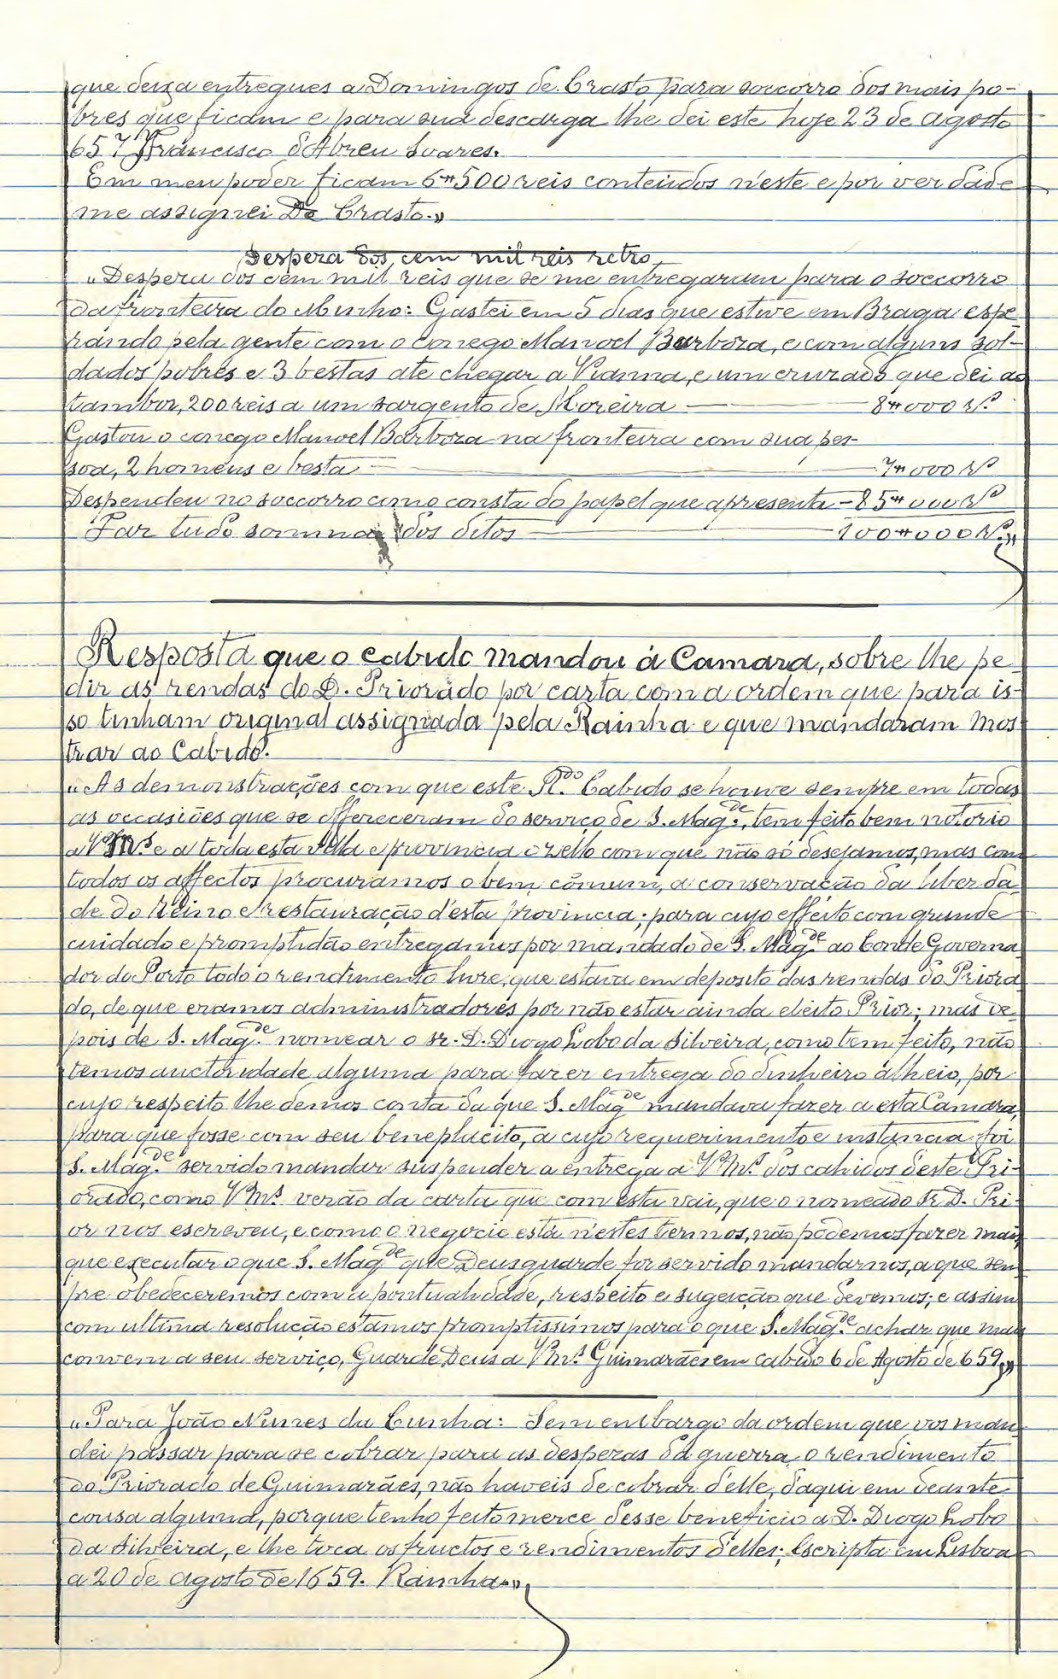 que deixa entregues a Domingos de Crasto para soccorro dos mais po-
bres que ficam e para sua descarga lhe dei este hoje 23 de agosto
657 Francisco d'Abreu Soares.
Em meu poder ficam 6#500 reis conteudos n'este e por verdade
me assignei De Crasto.»
Despeza dos cem mil reis retro
«Despeza dos cem mil reis que se me entregaram para o soccorro
da fronteira do Minho: Gastei em 5 dias que estive em Braga espe
rando pela gente com o conego Manoel Barboza, e com alguns sol-
dados pobres e 3 bestas ate chegar a Vianna, e um cruzado que dei ao
tambor, 200 reis a um sargento de Moreira — 8#000 Rs.
Gastou o conego Manoel Barboza na fronteira com sua pes-
soa, 2 homens e besta — 7#000 Rs
Despendeu no soccorro como consta do papel que apresenta — 85#000 Rs
Faz tudo somma dos ditos — 100#000 Rs.»
Resposta que o cabido mandou á Camara, sobre lhe pe-
dir as rendas do D. Priorado por carta com a ordem que para is-
so tinham original assignada pela Rainha e que mandaram mos
trar ao Cabido.
«As demonstrações com que este R.do Cabido se houve sempre em todas
as occasiões que se offereceram do serviço de S. Mag.de, tem feito bem notorio
a VMs e a toda esta villa e provincia o zello com que não só desejamos, mas com
todos os affectos procuramos o bem cõmum, a conservação da liberda-
de do Reino e restauração d'esta provincia; para cujo effeito com grande
cuidado e promptidão entregamos por mandado de S. Mag.de ao Conde Governa-
dor do Porto todo o rendimento livre, que estava em deposito das rendas do Priora
do, de que eramos administradores por não estar ainda eleito Prior; mas de-
pois de S. Mag.de nomear o sr. D. Diogo Lobo da Silveira, como tem feito, não
temos auctoridade alguma para fazer entrega do dinheiro alheio, por
cujo respeito lhe demos conta da que S. Mag.de mandava fazer a esta Camara,
para que fosse com seu beneplacito, a cujo requerimento e instancia foi
S. Mag.de servido mandar suspender a entrega a VMs dos cahidos deste Pri-
orado, como VMs verão da carta que com esta vai, que o nomeado Sr. D. Pri-
or nos escreveu, e como o negocio está n'estes termos, não podemos fazer mais
que executar o que S. Mag.de que Deus guarde for servido mandarnos, a que sem
pre obedeceremos com a pontualidade, respeito e sugeição que devemos; e assim
com ultima resolução estamos promptissimos para o que S. Mag.de achar que mais
convem a seu serviço, Guarde Deus a VMs Guimarães em cabido 6 de Agosto de 659.»
«Para João Nunes da Cunha: Sem embargo da ordem que vos man-
dei passar para se cobrar para as despezas da guerra o rendimento
do Priorado de Guimarães, não haveis de cobrar d'elle, daqui em deante
cousa alguma, porque tenho feito merce desse beneficio a D. Diogo Lobo
da Silveira, e lhe toca os fructos e rendimentos d'elles; Escripta em Lisboa
a 20 de agosto de 1659. Rainha.»